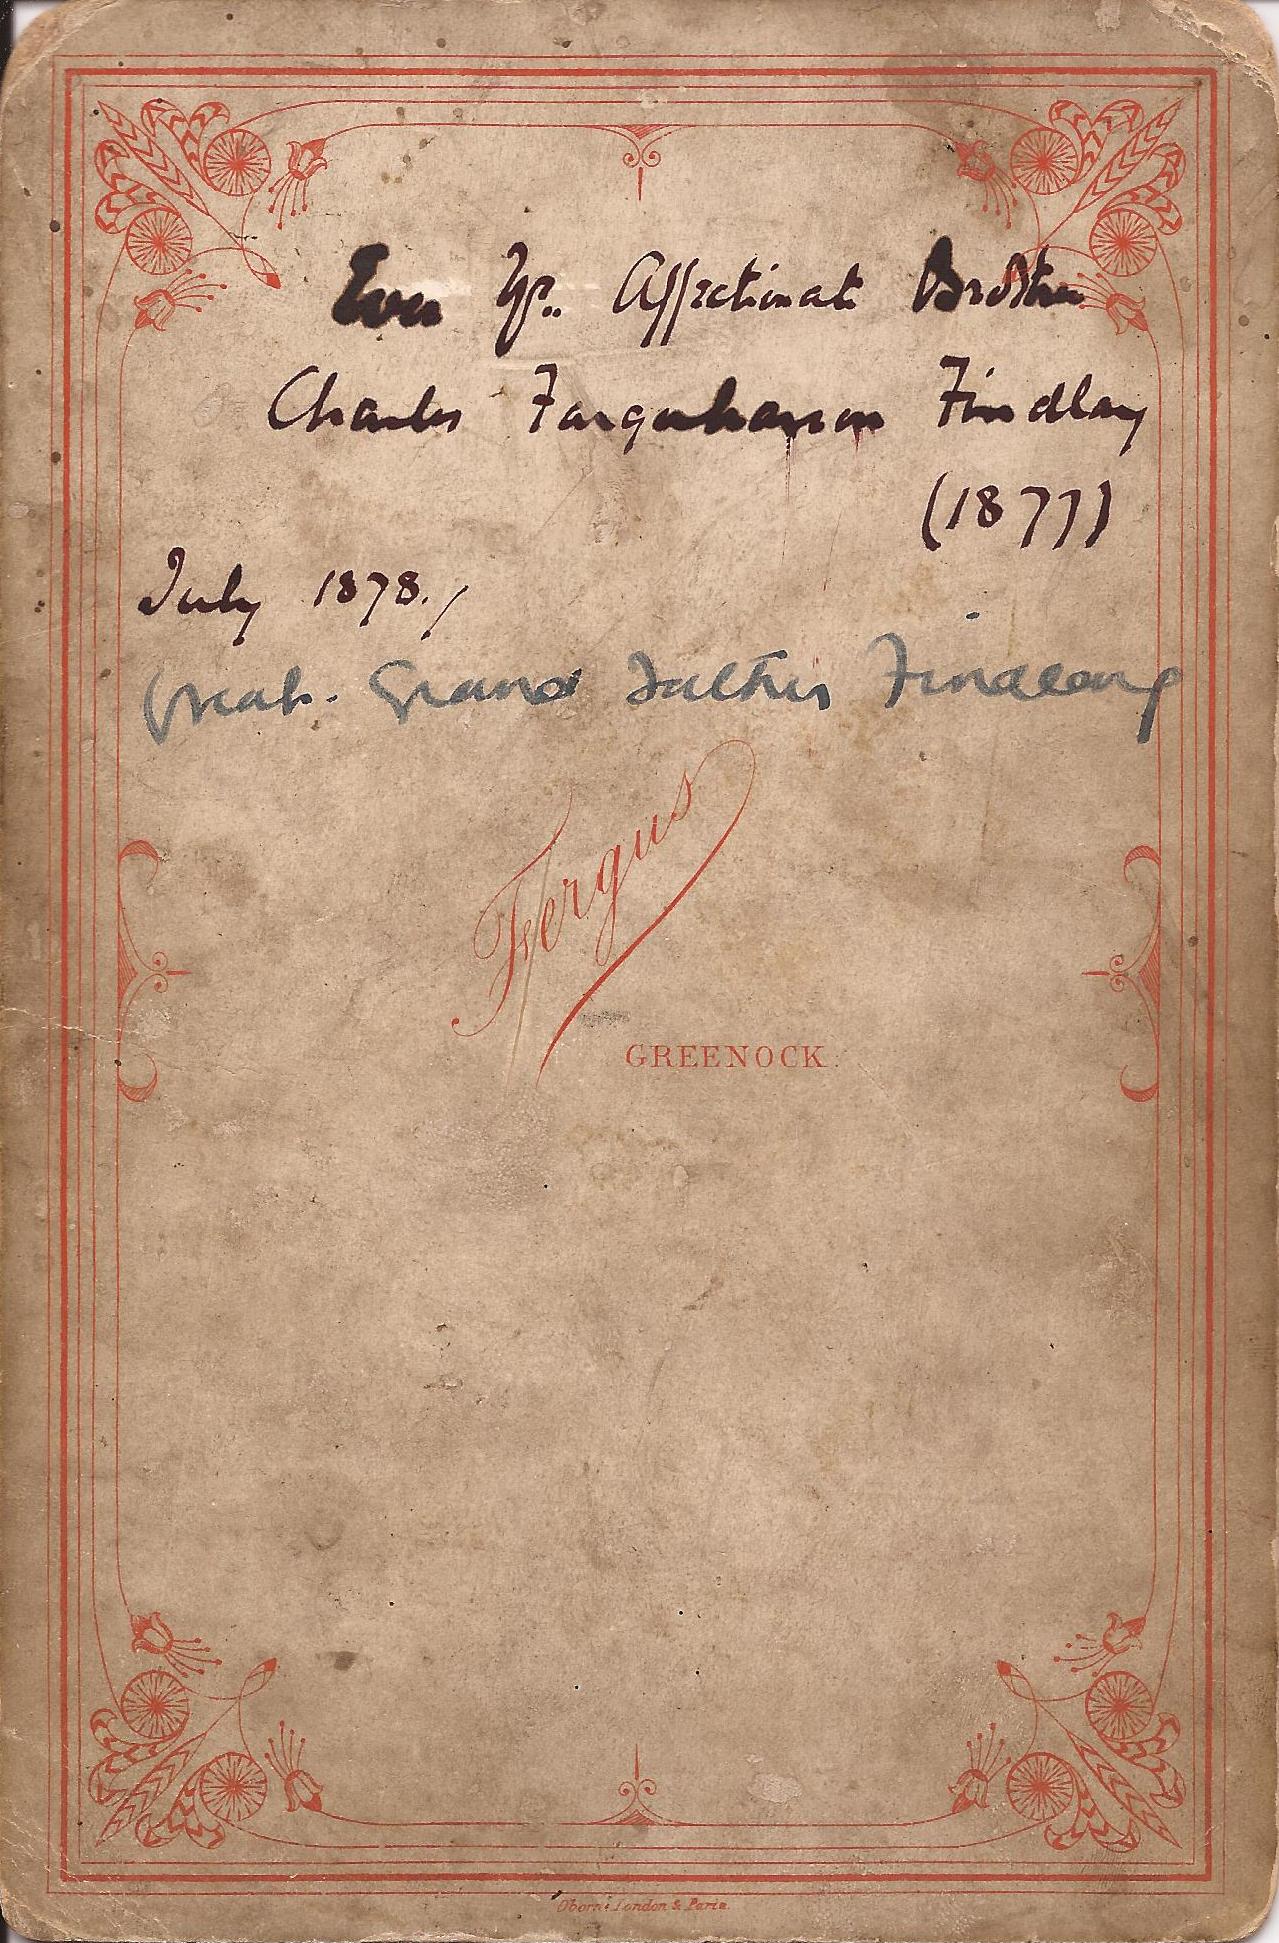 Ever Yr. Affectionate Brother
Charles Farquharson Findlay
(1877)
July 1878.,
Great. Grand Father Findlay
Fergus
GREENOCK.
Oborne London & Paris.